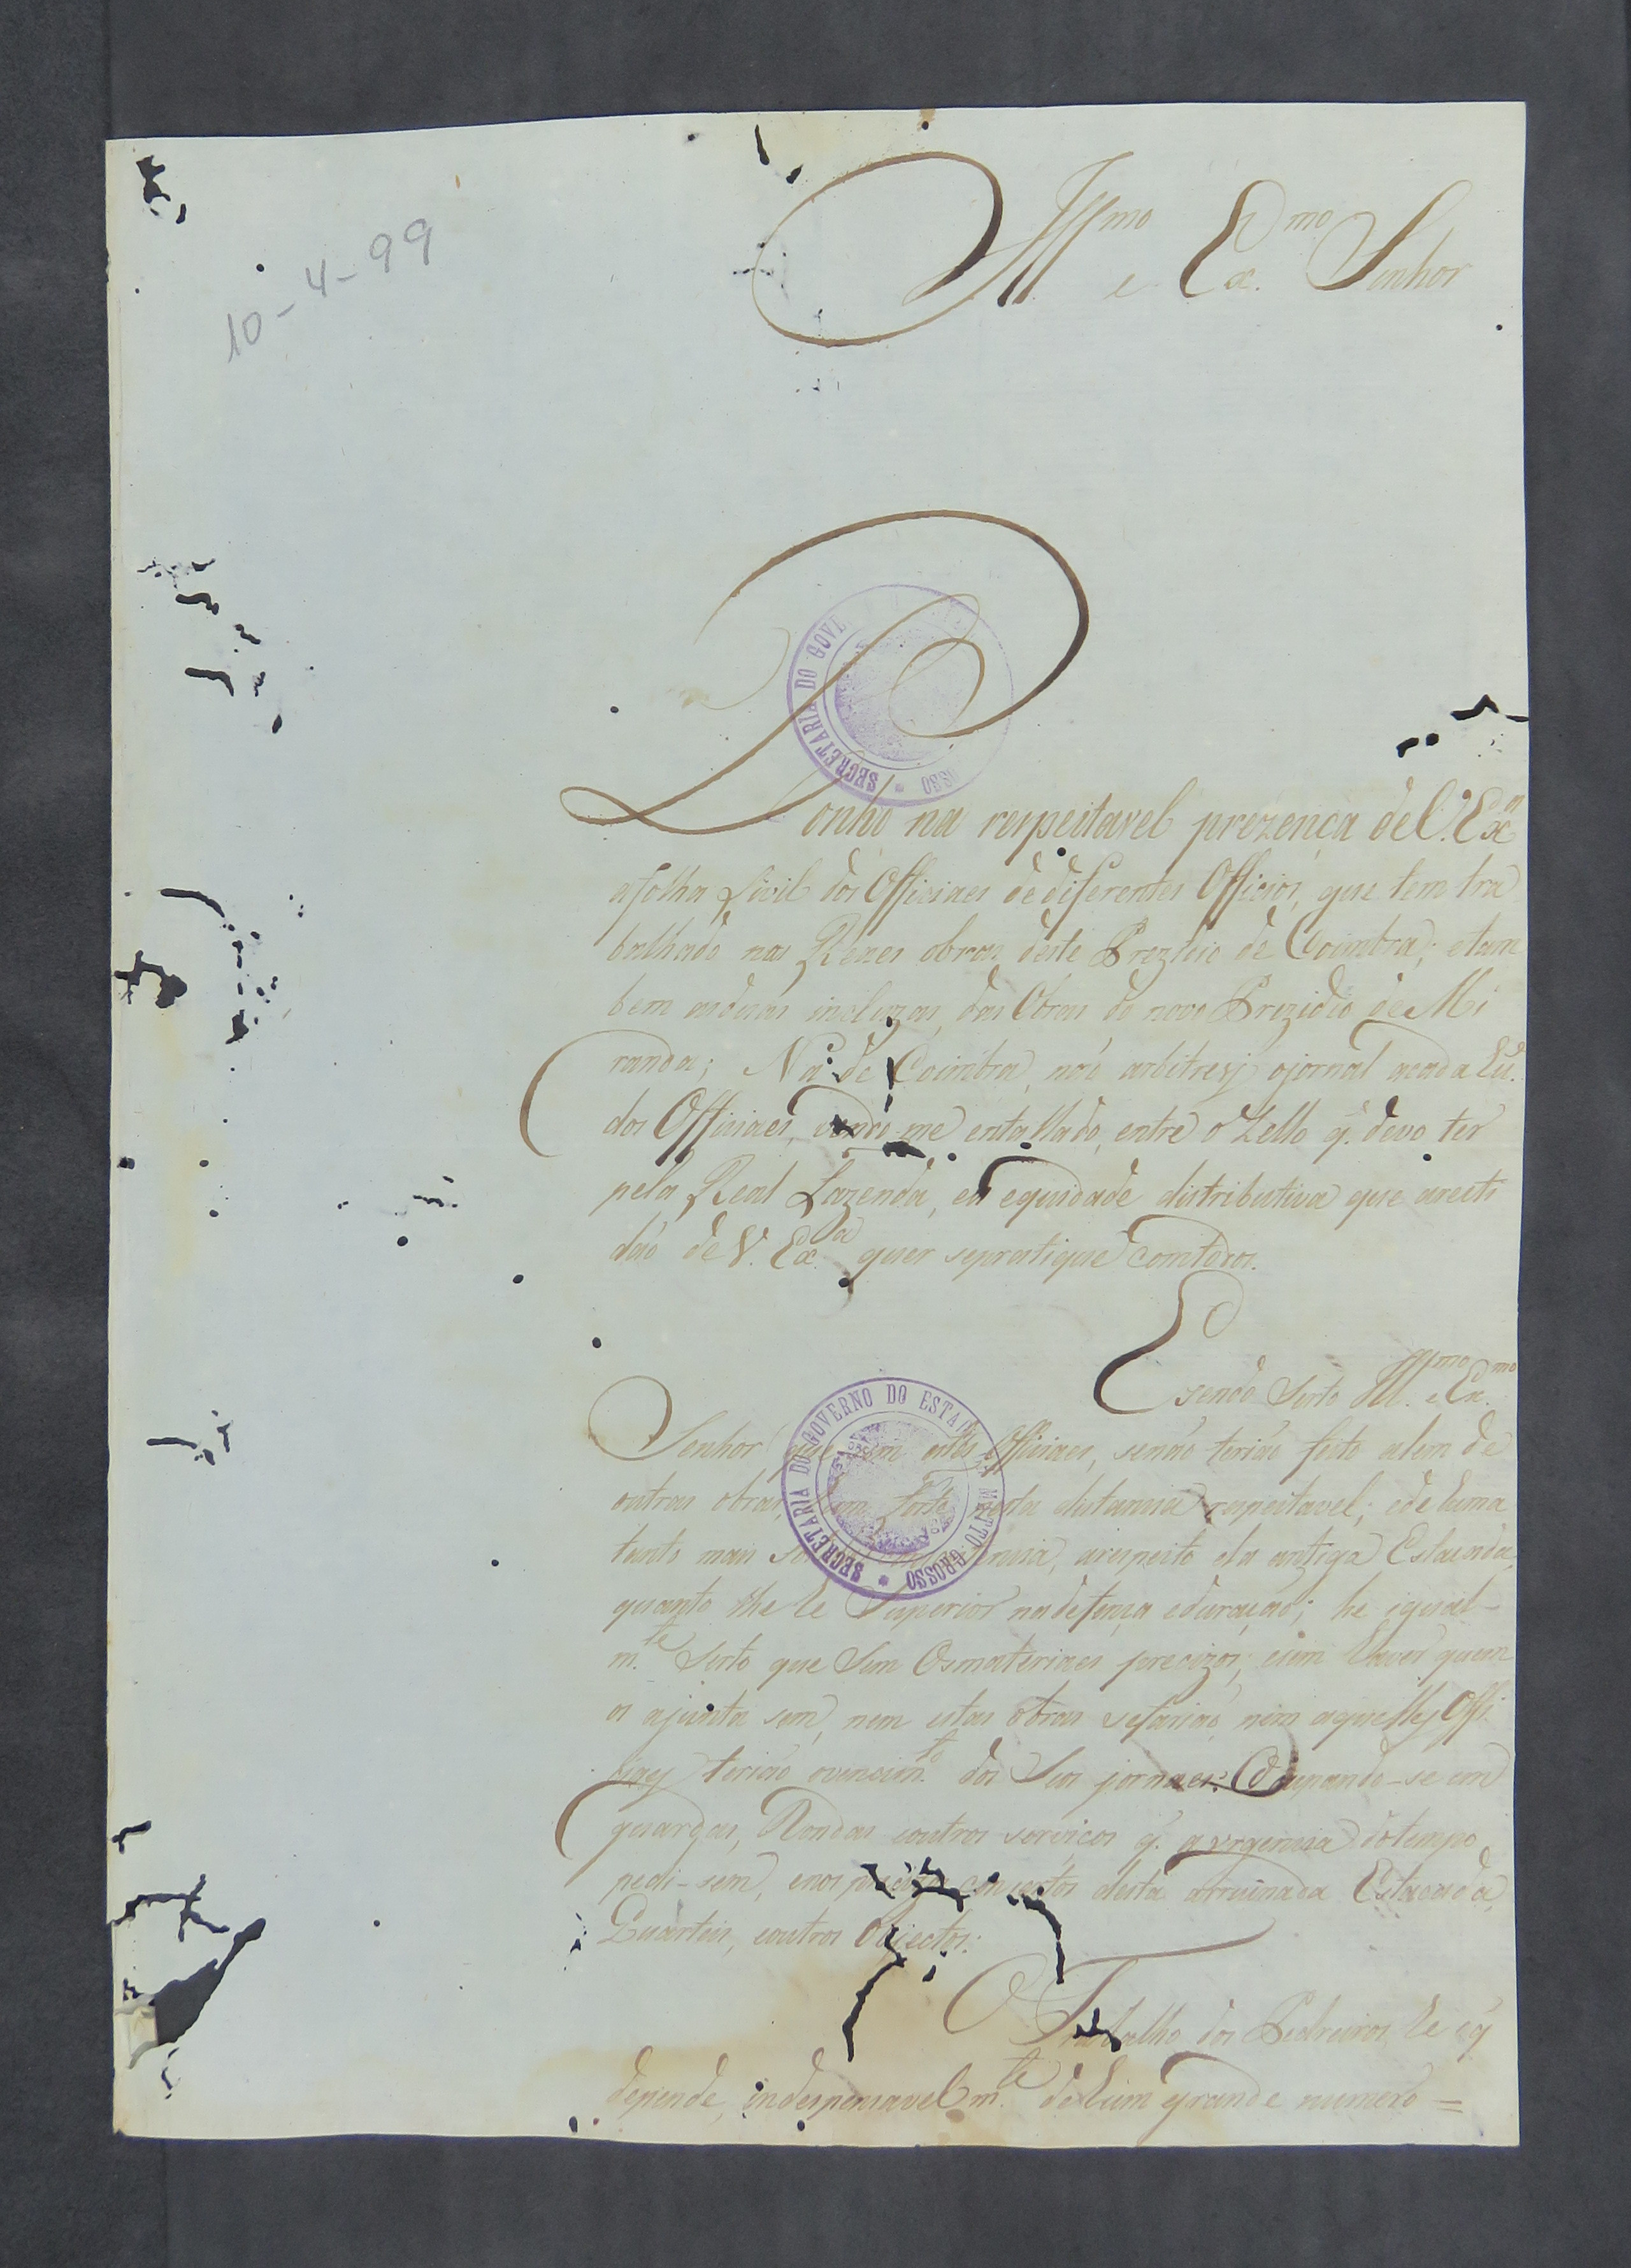 10-4-99
Illmo e Exmo Senhor
Ponho na respeitavel prezença de V. Exª
a folha Civil dos Officiaes de diferentes Officios, que tem tra
balhado nas Reaes obras deste Prezidio de Coimbra; etam
bem as duas incluzas, das Obras do novo Prezidio de Mi
randa; Na de Coimbra, não arbitrej o jornal a cada hũ
dos Officiaes, vendo-me entallado, entre o Zello q. devo ter
pela Real Fazenda, ea equidade distributiva que a recti
dão de V. Exª quer sepratique comtodos.
E sendo Serto Illmo e Exmo
Senhor que sem estes Officiaes, senão terião feito alem de
outras obras, hum Forte desta distancia respeitavel; e de huma
tanto mais arespeito da antiga Estacada,
quanto lhe he Superior nadefença eduração; he igual-
m.te Serto que Sem Osmateriaes precizos, esem haver quem
os ajunta sem, nem estas obras sefarião, nem aquelles Offi
ciaes terião ovencim.to dos Seos jornaes: Ocupando-se em
guardas, Rondas eoutros serviços q. a vrgencia dotempo
pedi-sem, enos concertos desta arruinada Estacada,
Quarteis, eoutros Objectos:
O Trabalho dos Pedreiros he q
depende, indespensavelm.te dehum grande numero =
SECRETARIA DO GOVE OSSO
SECRETARIA DO GOVERNO DO ESTADO MATTO GROSSO